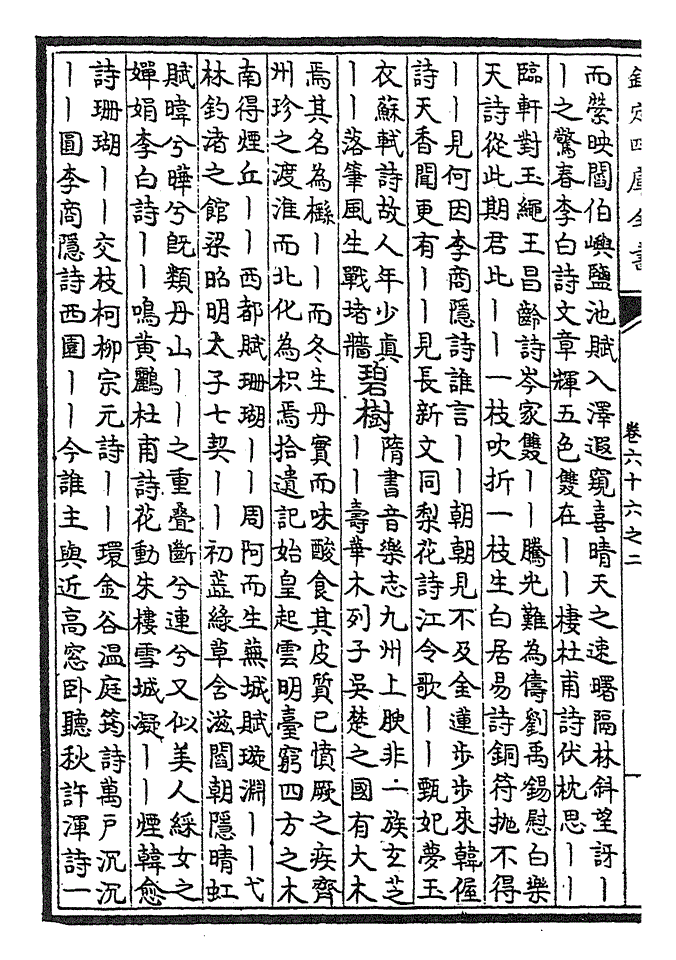 欽定四庫全書
卷六十六之二
一
而縈映閻伯嶼鹽池賦入澤遐窺喜晴天之速曙隔林斜望訝丨
丨之驚春李白詩文章輝五色雙在丨丨棲杜甫詩伏枕思丨丨
臨軒對玉繩王昌齡詩岑家雙丨丨騰光難為儔劉禹錫慰白樂
天詩從此期君比丨丨一枝吹折一枝生白居易詩銅符抛不得
丨丨見何因李商隱詩誰言丨丨朝朝見不及金蓮步步來韓偓
詩天香聞更有丨丨見長新文同梨花詩江令歌丨丨甄妃夢玉
衣蘇軾詩故人年少真
丨丨落筆風生戰堵牆
碧樹
隋書音樂志九州上腴非一族玄芝
丨丨壽華木列子吳楚之國有大木
焉其名為櫾丨丨而冬生丹實而味酸食其皮質已憤厥之疾齊
州珍之渡淮而北化為枳焉拾遺記始皇起雲明臺窮四方之木
南得煙丘丨丨西都賦珊瑚丨丨周阿而生蕪城賦璇淵丨丨弋
林釣渚之館梁昭明太子七契丨丨初蘂綠草含滋閻朝隱晴虹
賦暐兮曄兮既類丹山丨丨之重疊斷兮連兮又似美人綵女之
嬋娟李白詩丨丨鳴黃鸝杜甫詩花動朱樓雪城凝丨丨煙韓愈
詩珊瑚丨丨交枝柯柳宗元詩丨丨環金谷温庭筠詩萬户沉沉
丨丨圓李商隱詩西園丨丨今誰主與近高窓卧聽秋許渾詩一